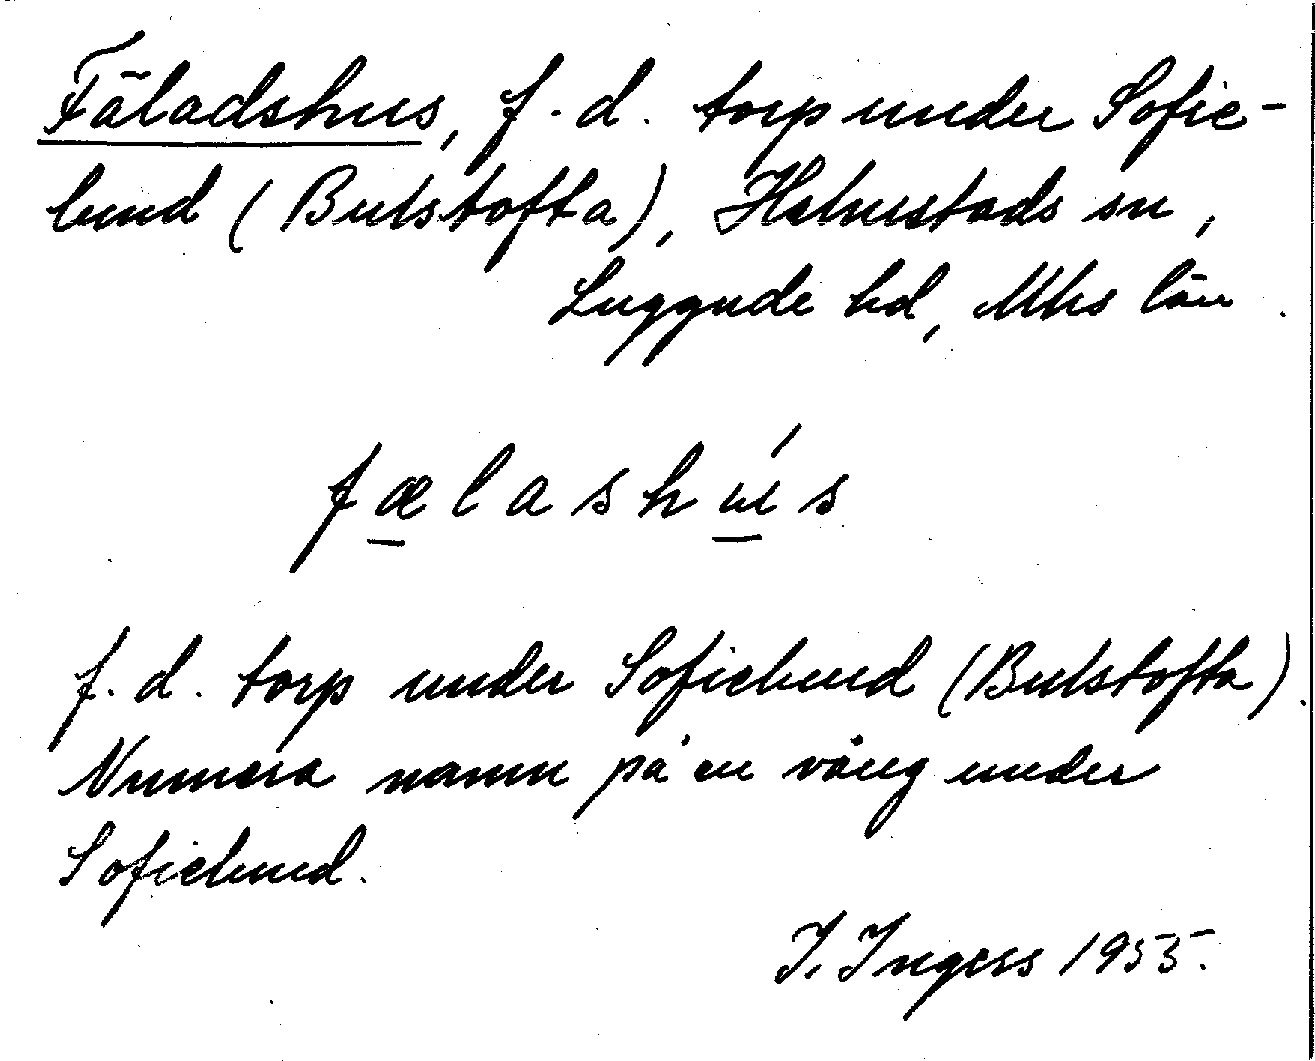 Fäladshus, f.d. torp under Sofie-
lund (Bulstofta), Halmstads sn,
Luggude hd, Mhs län.
fælashús
f.d. torp under Sofielund (Bulstofta).
Numera namn på en vång under
Sofielund.
I. Ingers 1955.